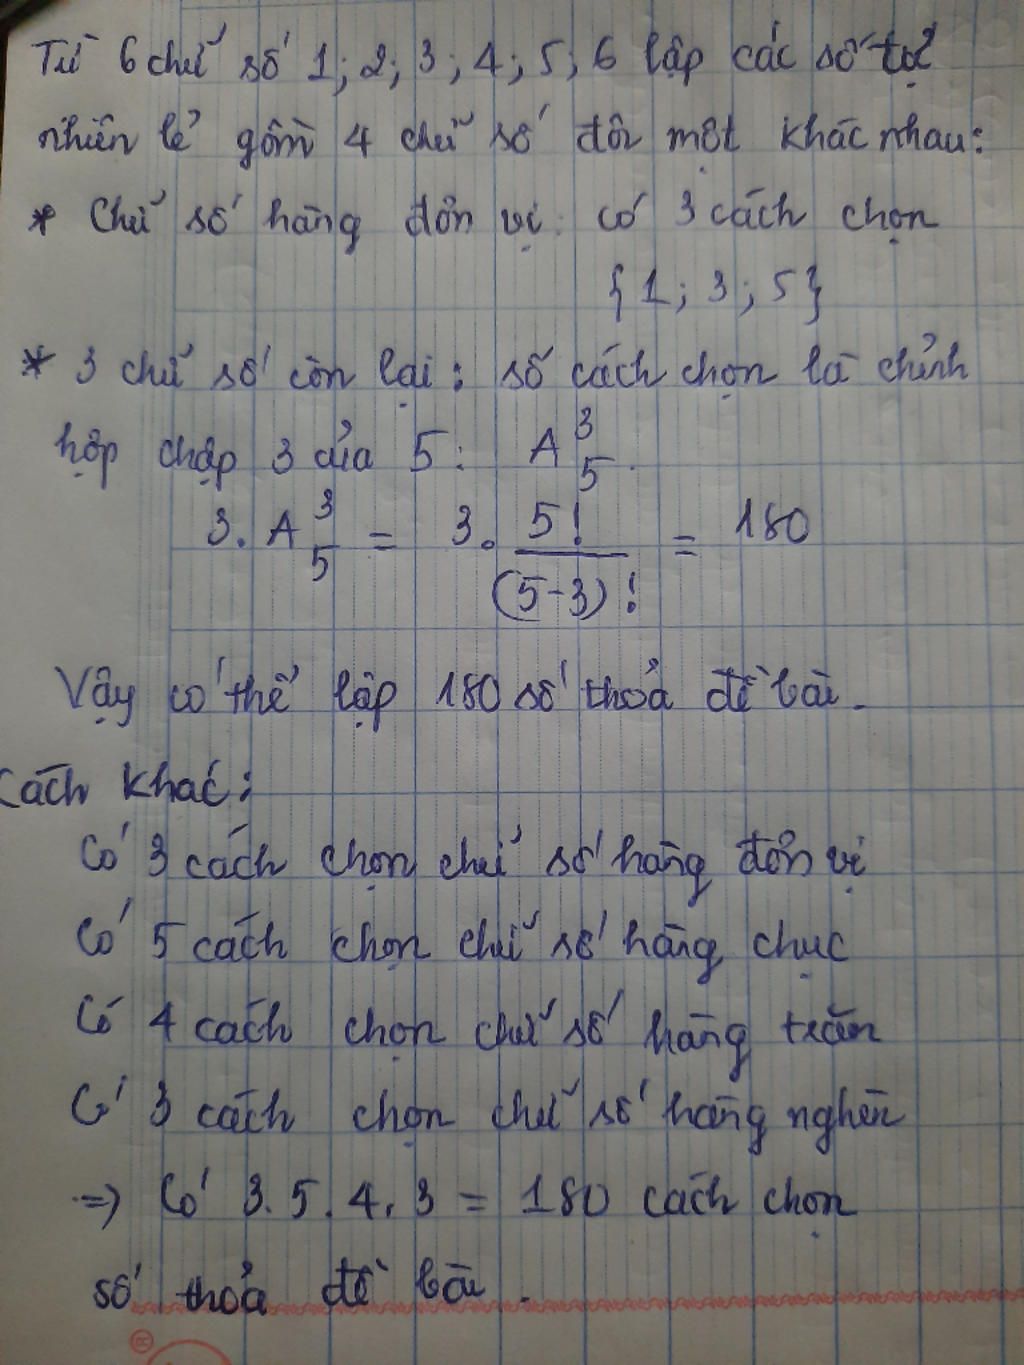 Từ 6 chữ số 1; 2; 3; 4; 5; 6 lập các số tự
nhiên lẻ gồm 4 chữ số đôi một khác nhau:
* Chữ số hàng đơn vị: có 3 cách chọn
{1; 3; 5}
* 3 chữ số còn lại: số cách chọn là chỉnh
hợp chập 3 của 5: A³₅.
3. A³₅ = 3. 5!/(5-3)! = 180
Vậy có thể lập 180 số thỏa đề bài.
Cách khác:
Có 3 cách chọn chữ số hàng đơn vị
Có 5 cách chọn chữ số hàng chục
Có 4 cách chọn chữ số hàng trăm
Có 3 cách chọn chữ số hàng nghìn
=> Có 3.5.4.3 = 180 cách chọn
số thỏa đề bài.